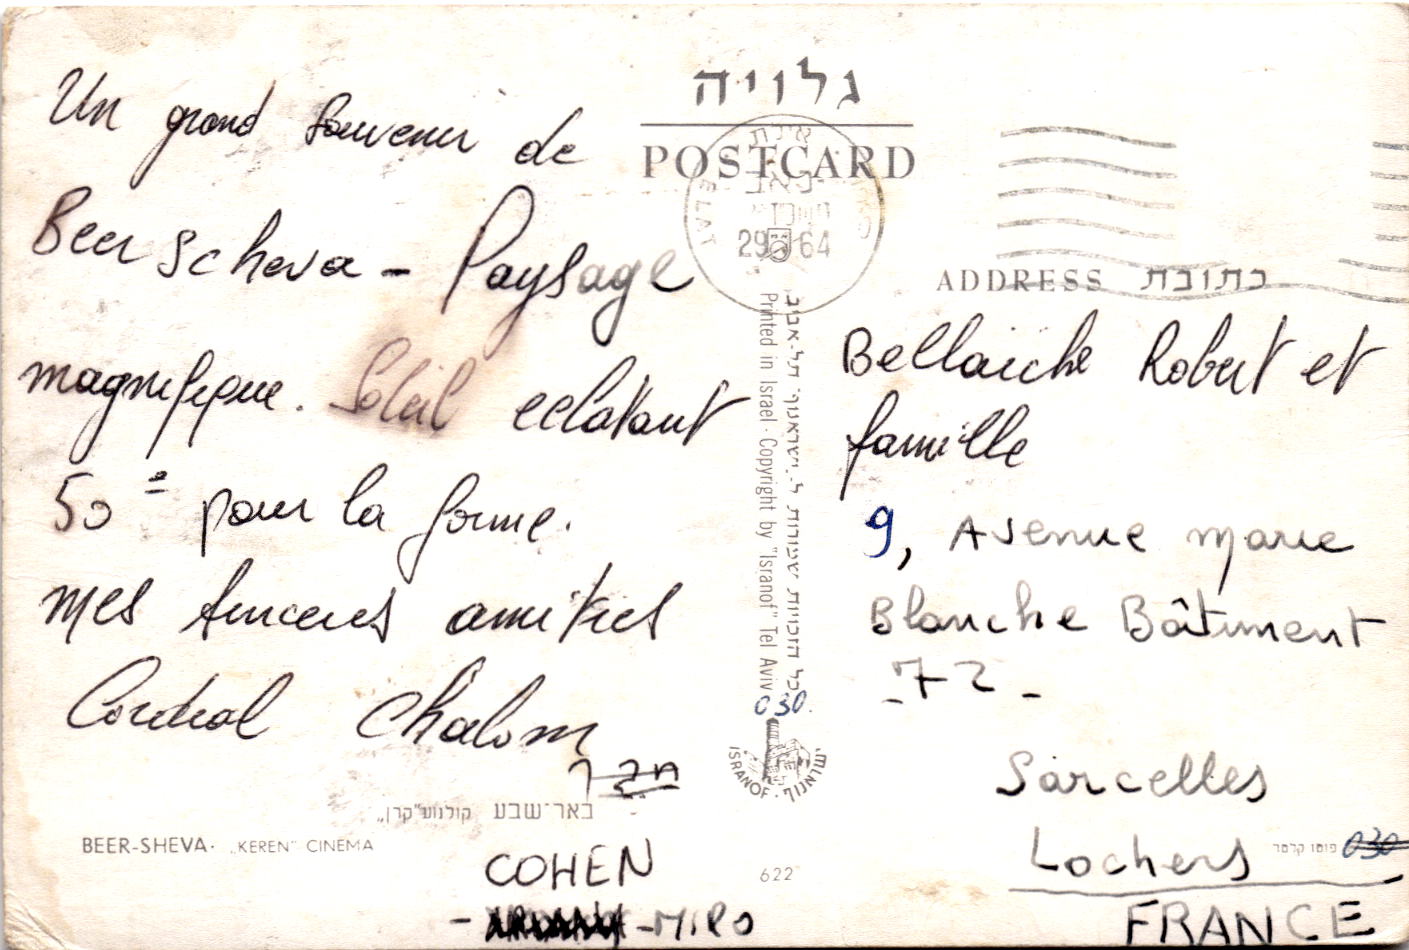 גלויה
POSTCARD
אילת
ELAT
29 64
ADDRESS כתובת
Un grand souvenir de
Beer Scheva - Paysage
magnifique. Soleil eclatant
50 e pour la forme.
mes sinceres amities
Cordial Chalom
COHEN
- MIRO
באר־שבע קולנוע "קרן"
BEER-SHEVA · „KEREN" CINEMA
כל הזכויות שמורות ל. ישראנוף תל-אביב
Printed in Israel · Copyright by "Isranof" Tel Aviv
030.
ISRANOF · ישראנוף
622
Bellaiche Robert et
famille
9, Avenue Marie
Blanche Bâtiment
- 72 -
Sarcelles
Lochers
פוטו קלטר 030
FRANCE